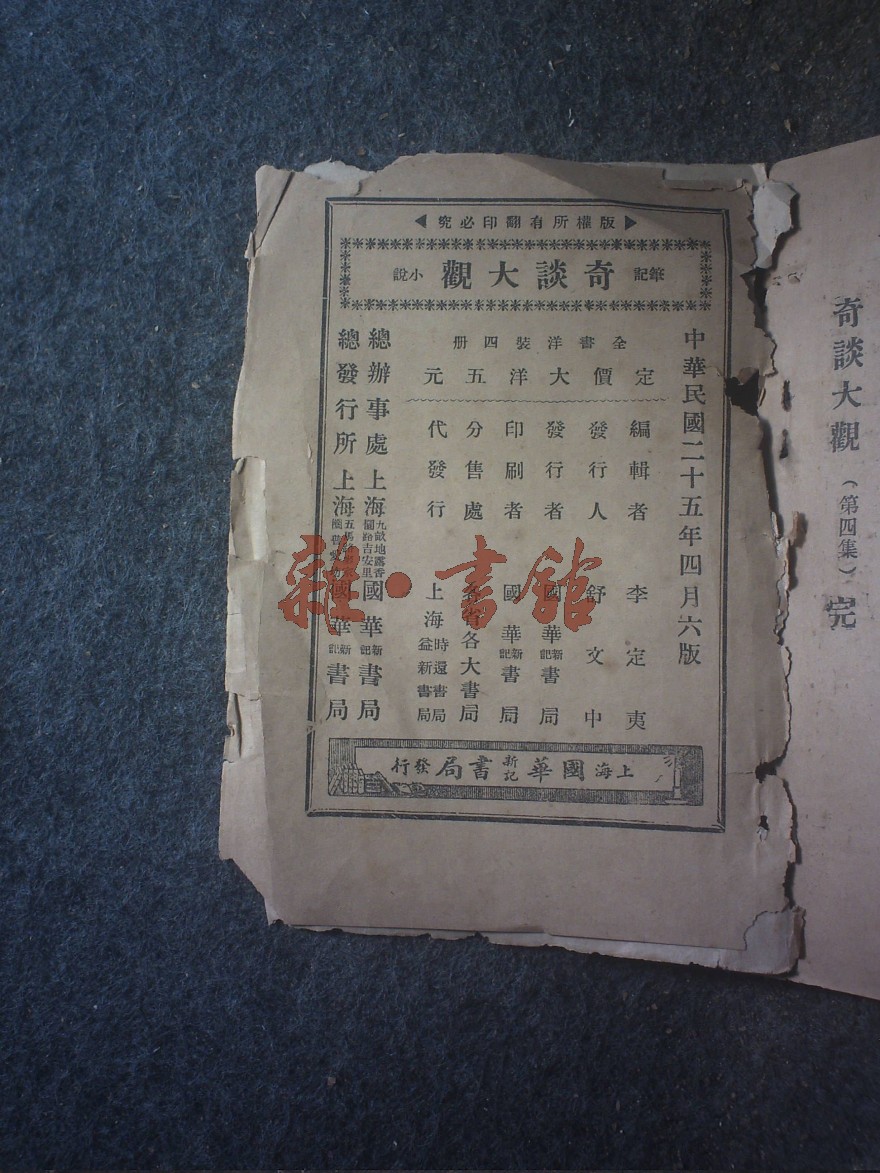 奇談大觀(第四集)完
版權所有翻印必究
筆記 奇談大觀 小說
中華民國二十五年四月六版
全書洋裝四册
定價大洋五元
編輯者 李定夷
發行人 舒文中
發行者 國華新記書局
印刷者 國華新記書局
分售處 各省各大書局
代發行 上海時還書局 益新書局
總辦事處 上海九畝地露香園路吉安里 國華新記書局
總發行所 上海五馬路 國華新記書局
上海國華新記書局發行
雜·書館